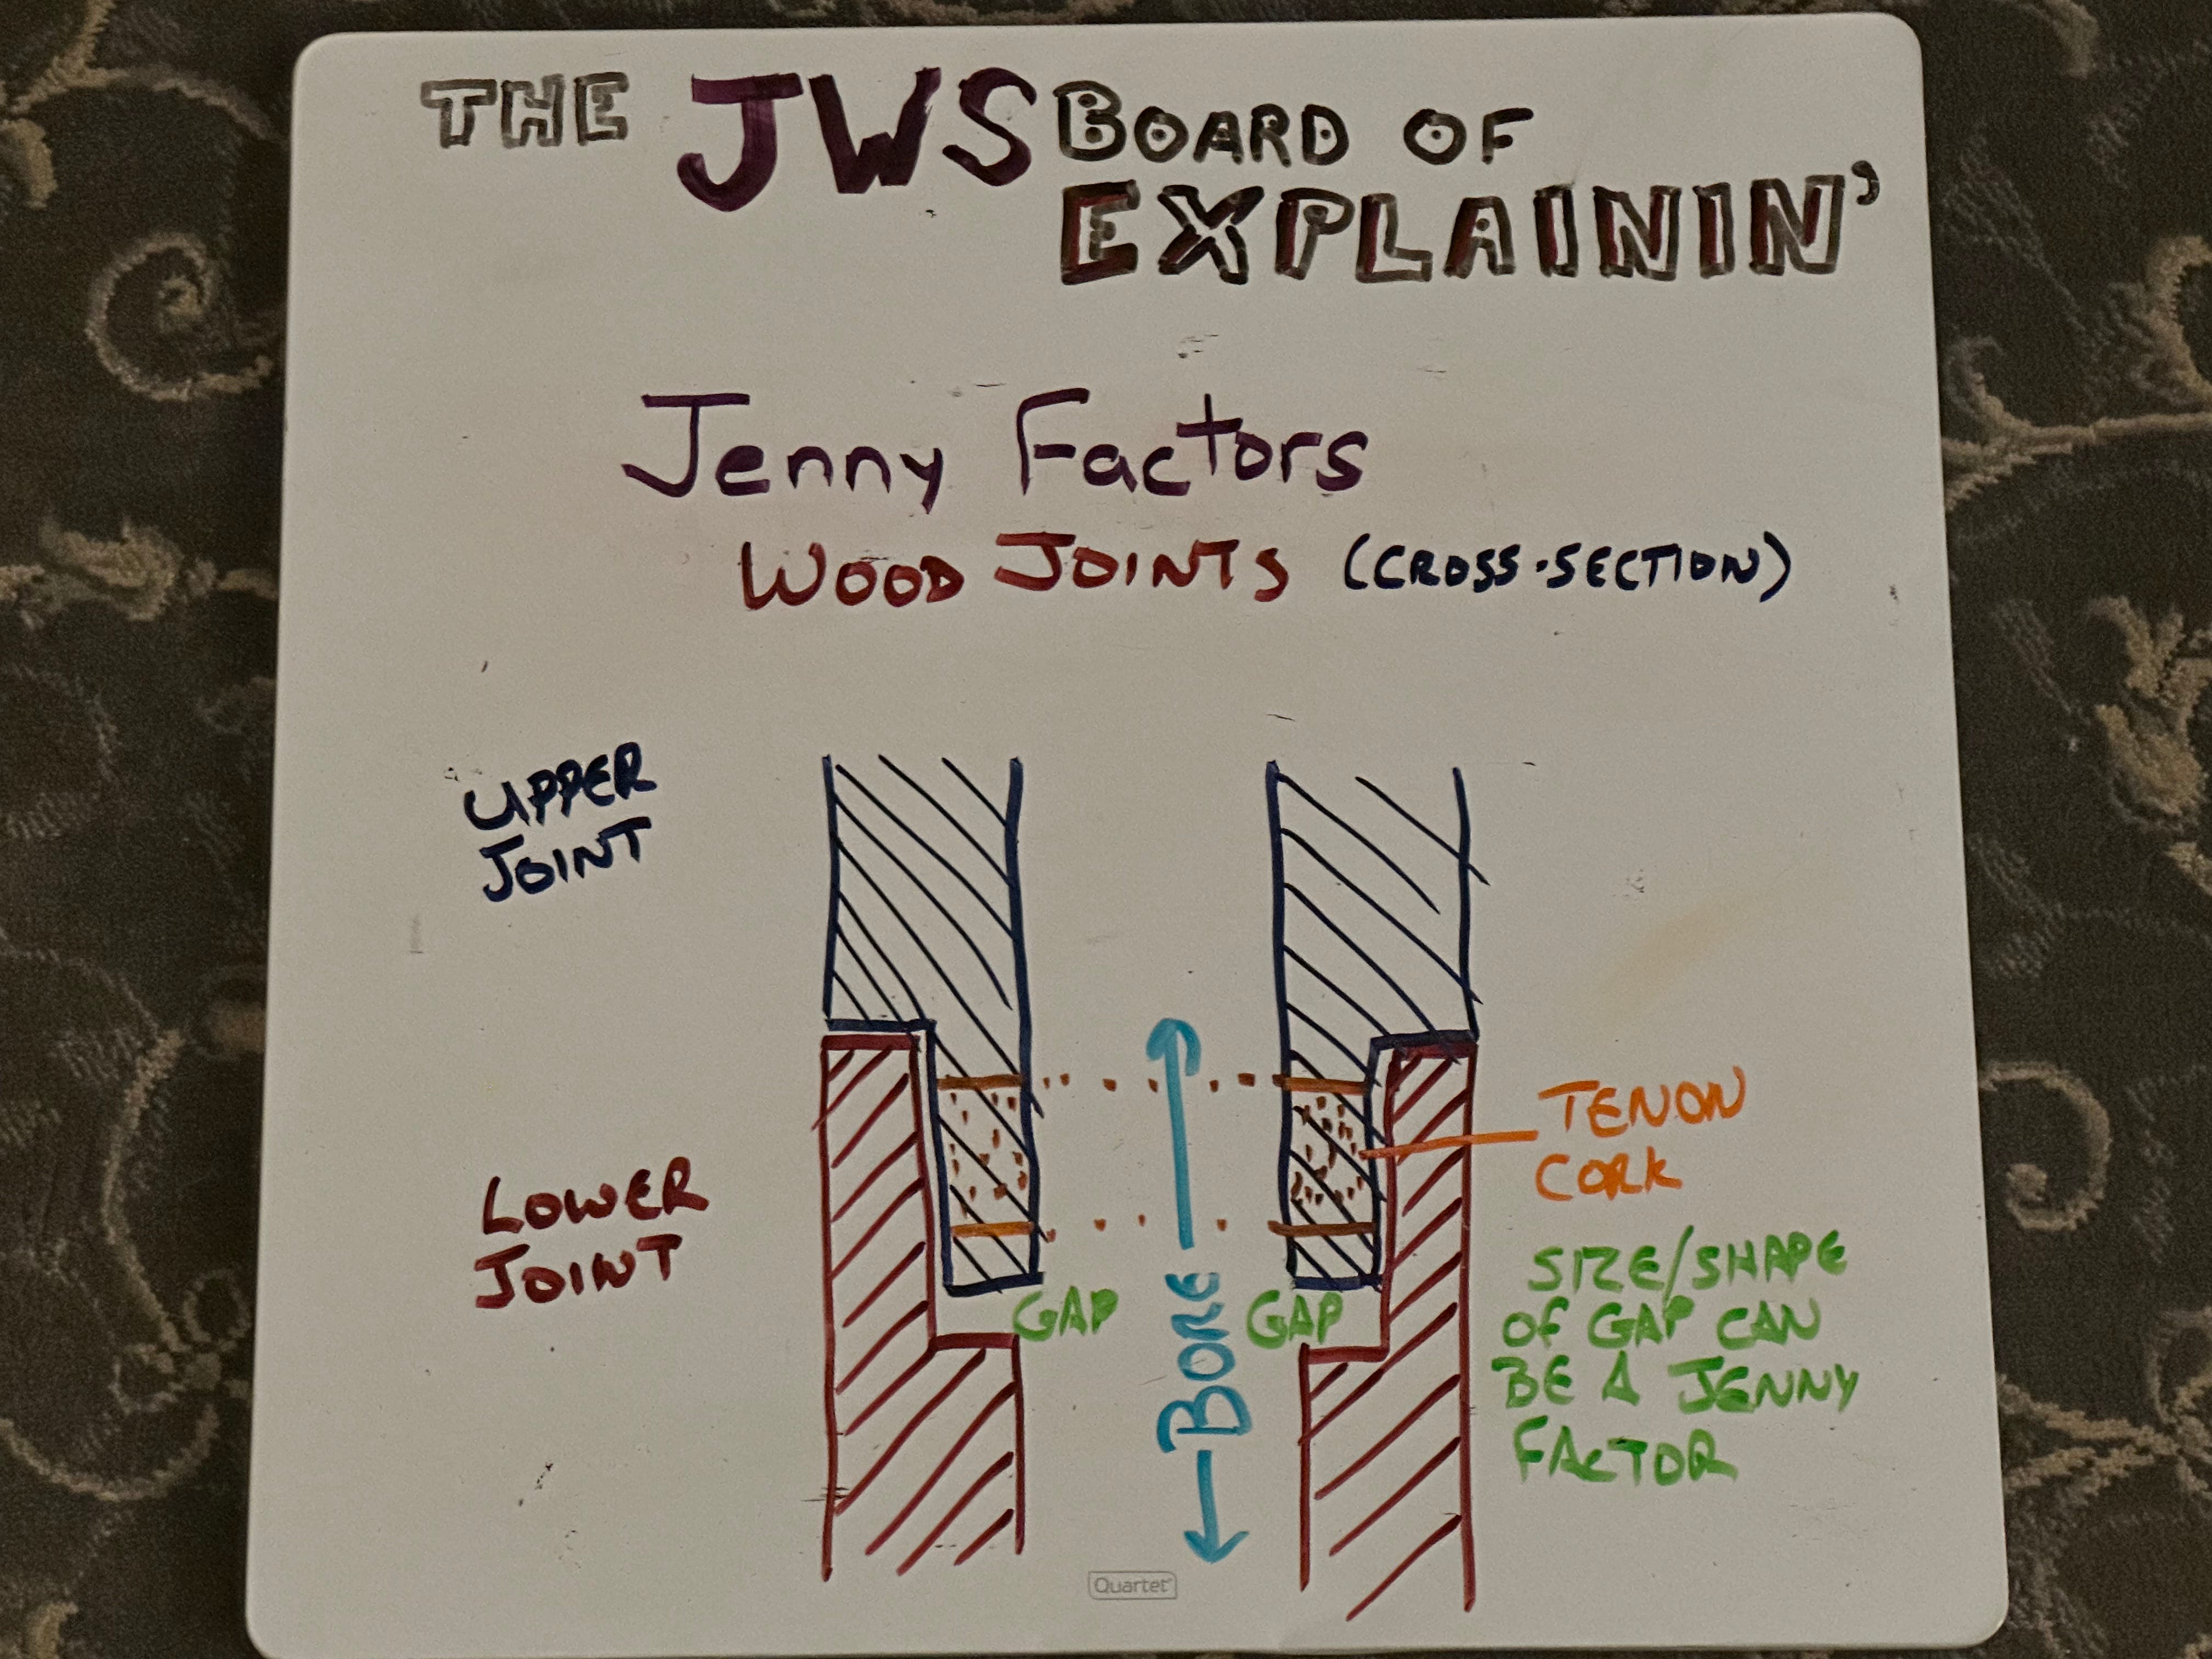 THE JWS BOARD OF
EXPLAININ'
Jenny Factors
WOOD JOINTS (CROSS-SECTION)
UPPER
JOINT
LOWER
JOINT
TENON
CORK
GAP
BORE
GAP
SIZE/SHAPE
OF GAP CAN
BE A JENNY
FACTOR
Quartet